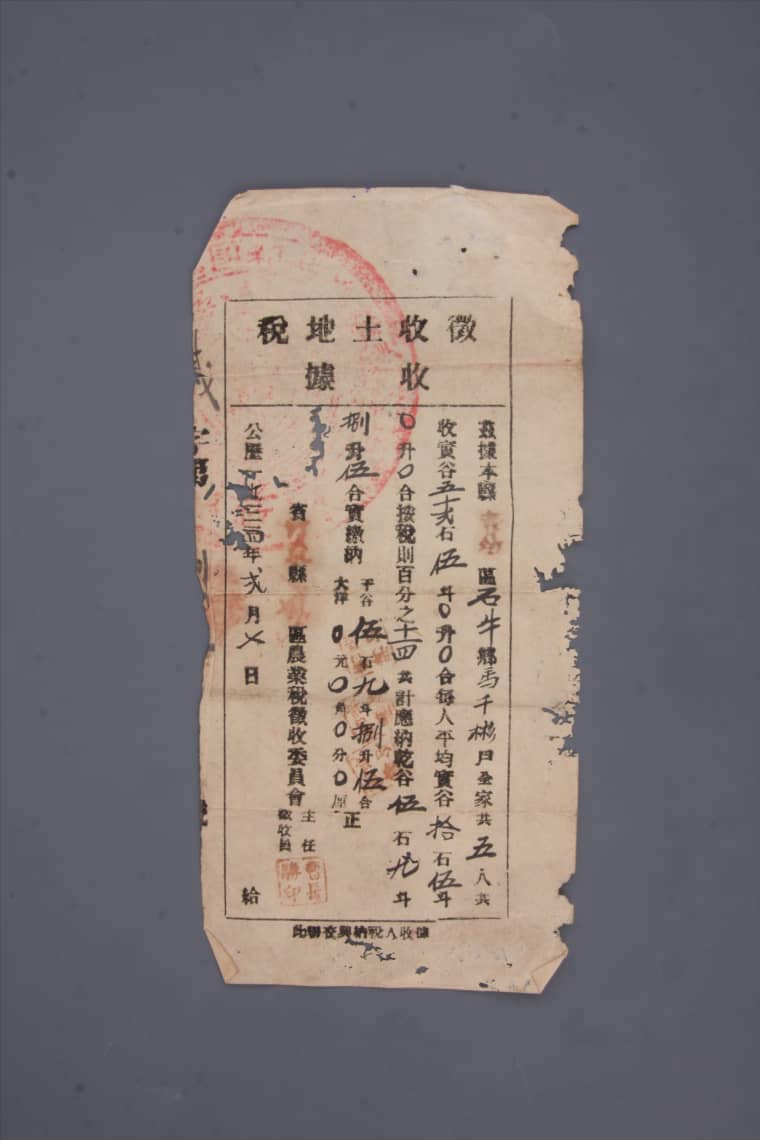 徵收土地稅
收據
茲據本縣 區石牛鄉馬千彬戶全家共五人共
收實谷五十弍石伍斗0升0合每人平均實谷拾石伍斗
0升0合按稅則百分之十一四共計應納乾谷伍石九斗
捌升伍合實繳納
干谷伍石九斗捌升伍合
大洋0元0角0分0厘
正
省 縣 區農業稅徵收委員會
主任
徵收員
公歷一九三四年弍月 日
給
此聯交與納稅人收據
字第
號